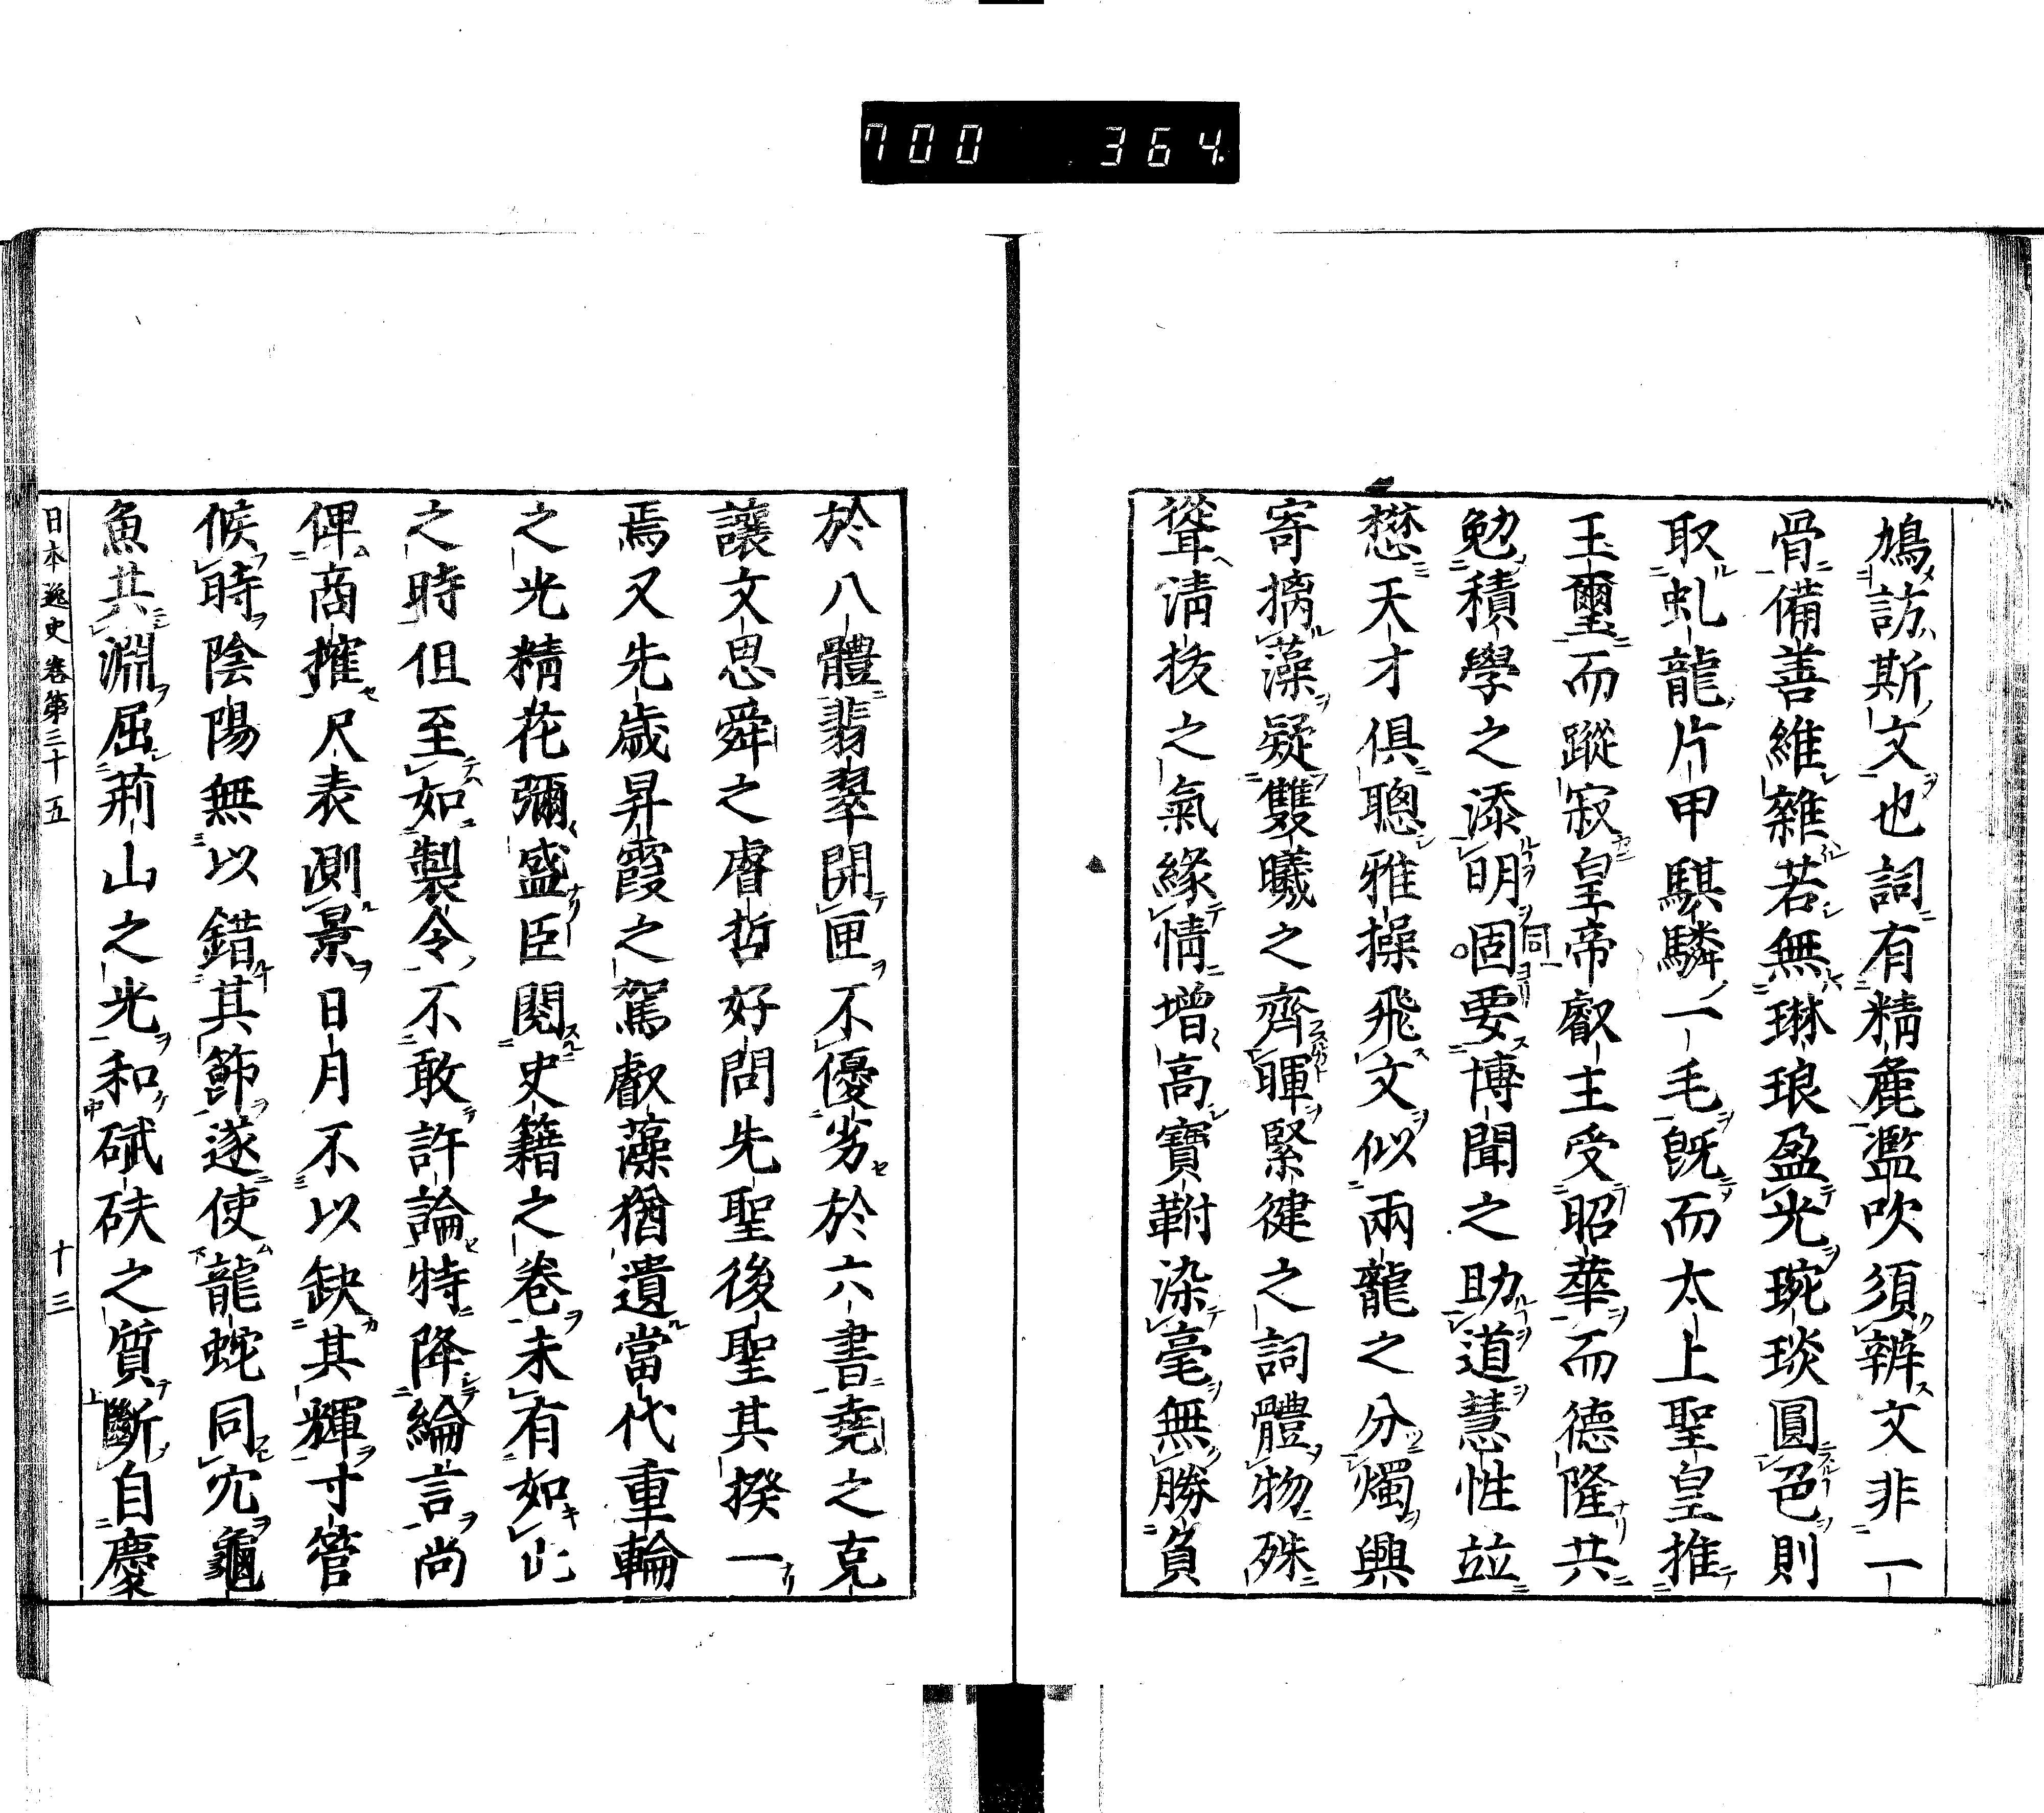 700 364
鳩訪斯文也詞有精麁濫吹須辨文非一
骨備善維雜若無琳琅盈光琬琰圓色則
取虬龍片甲騏驎一毛既而太上聖皇推
玉璽而蹤寂皇帝叡主受昭華而德隆共
勉積學之添明固要博聞之助道慧性竝
懋天才俱聰雅操飛文似兩龍之分燭興
寄摛藻疑雙曦之齊暉緊健之詞體物殊
聳清抜之氣緣情增高寶鞘染毫無勝負
於八體翡翠開匣不優劣於六書堯之克
讓文思舜之睿哲好問先聖後聖其揆一
焉又先歳昇霞之駕叡藻猶遺當代重輪
之光精花彌盛臣閱史籍之卷未有如此
之時但至如製令不敢許論特降綸言尚
俾商搉尺表測景日月不以缺其輝寸管
候時陰陽無以錯其節遂使龍蛇同穴龜
魚共淵屈荊山之光和碔砆之質斷自慶
日本逸史 卷第三十五 十三